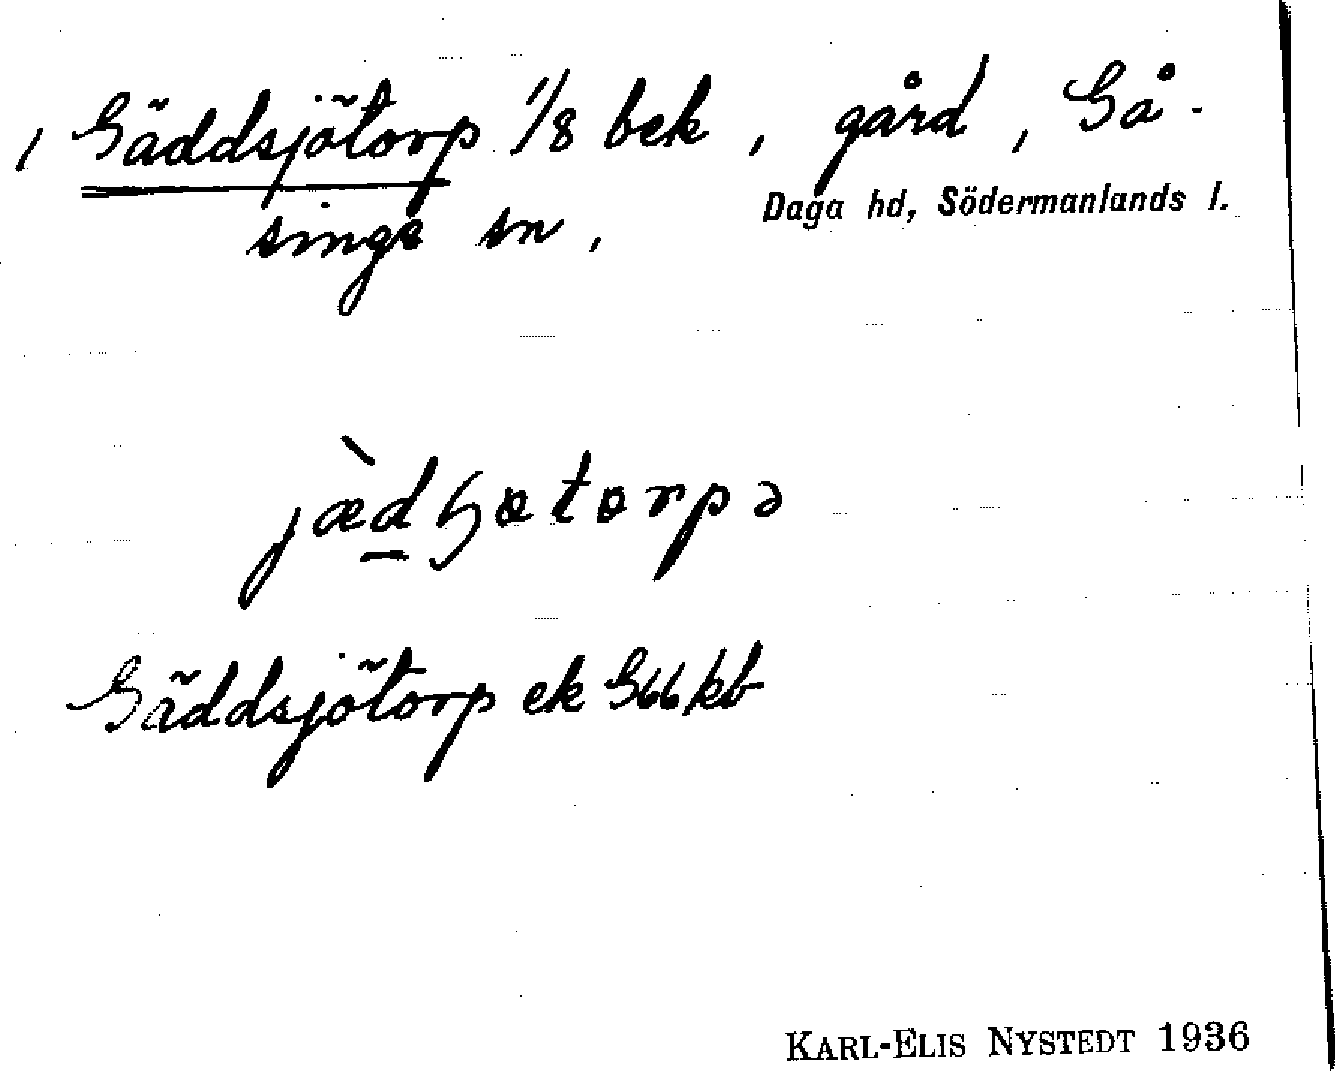 / Gäddsjötorp 1/8 bek, gård, Gå-
singe sn,
Daga hd, Södermanlands l.
jæ̀dꞕɵtɵrpə
Gäddsjötorp ek G66kb
KARL-ELIS NYSTEDT 1936